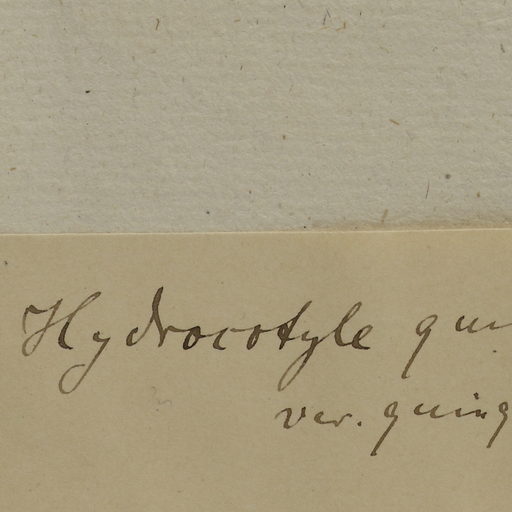 Hydrocotyle qui
var. quinq